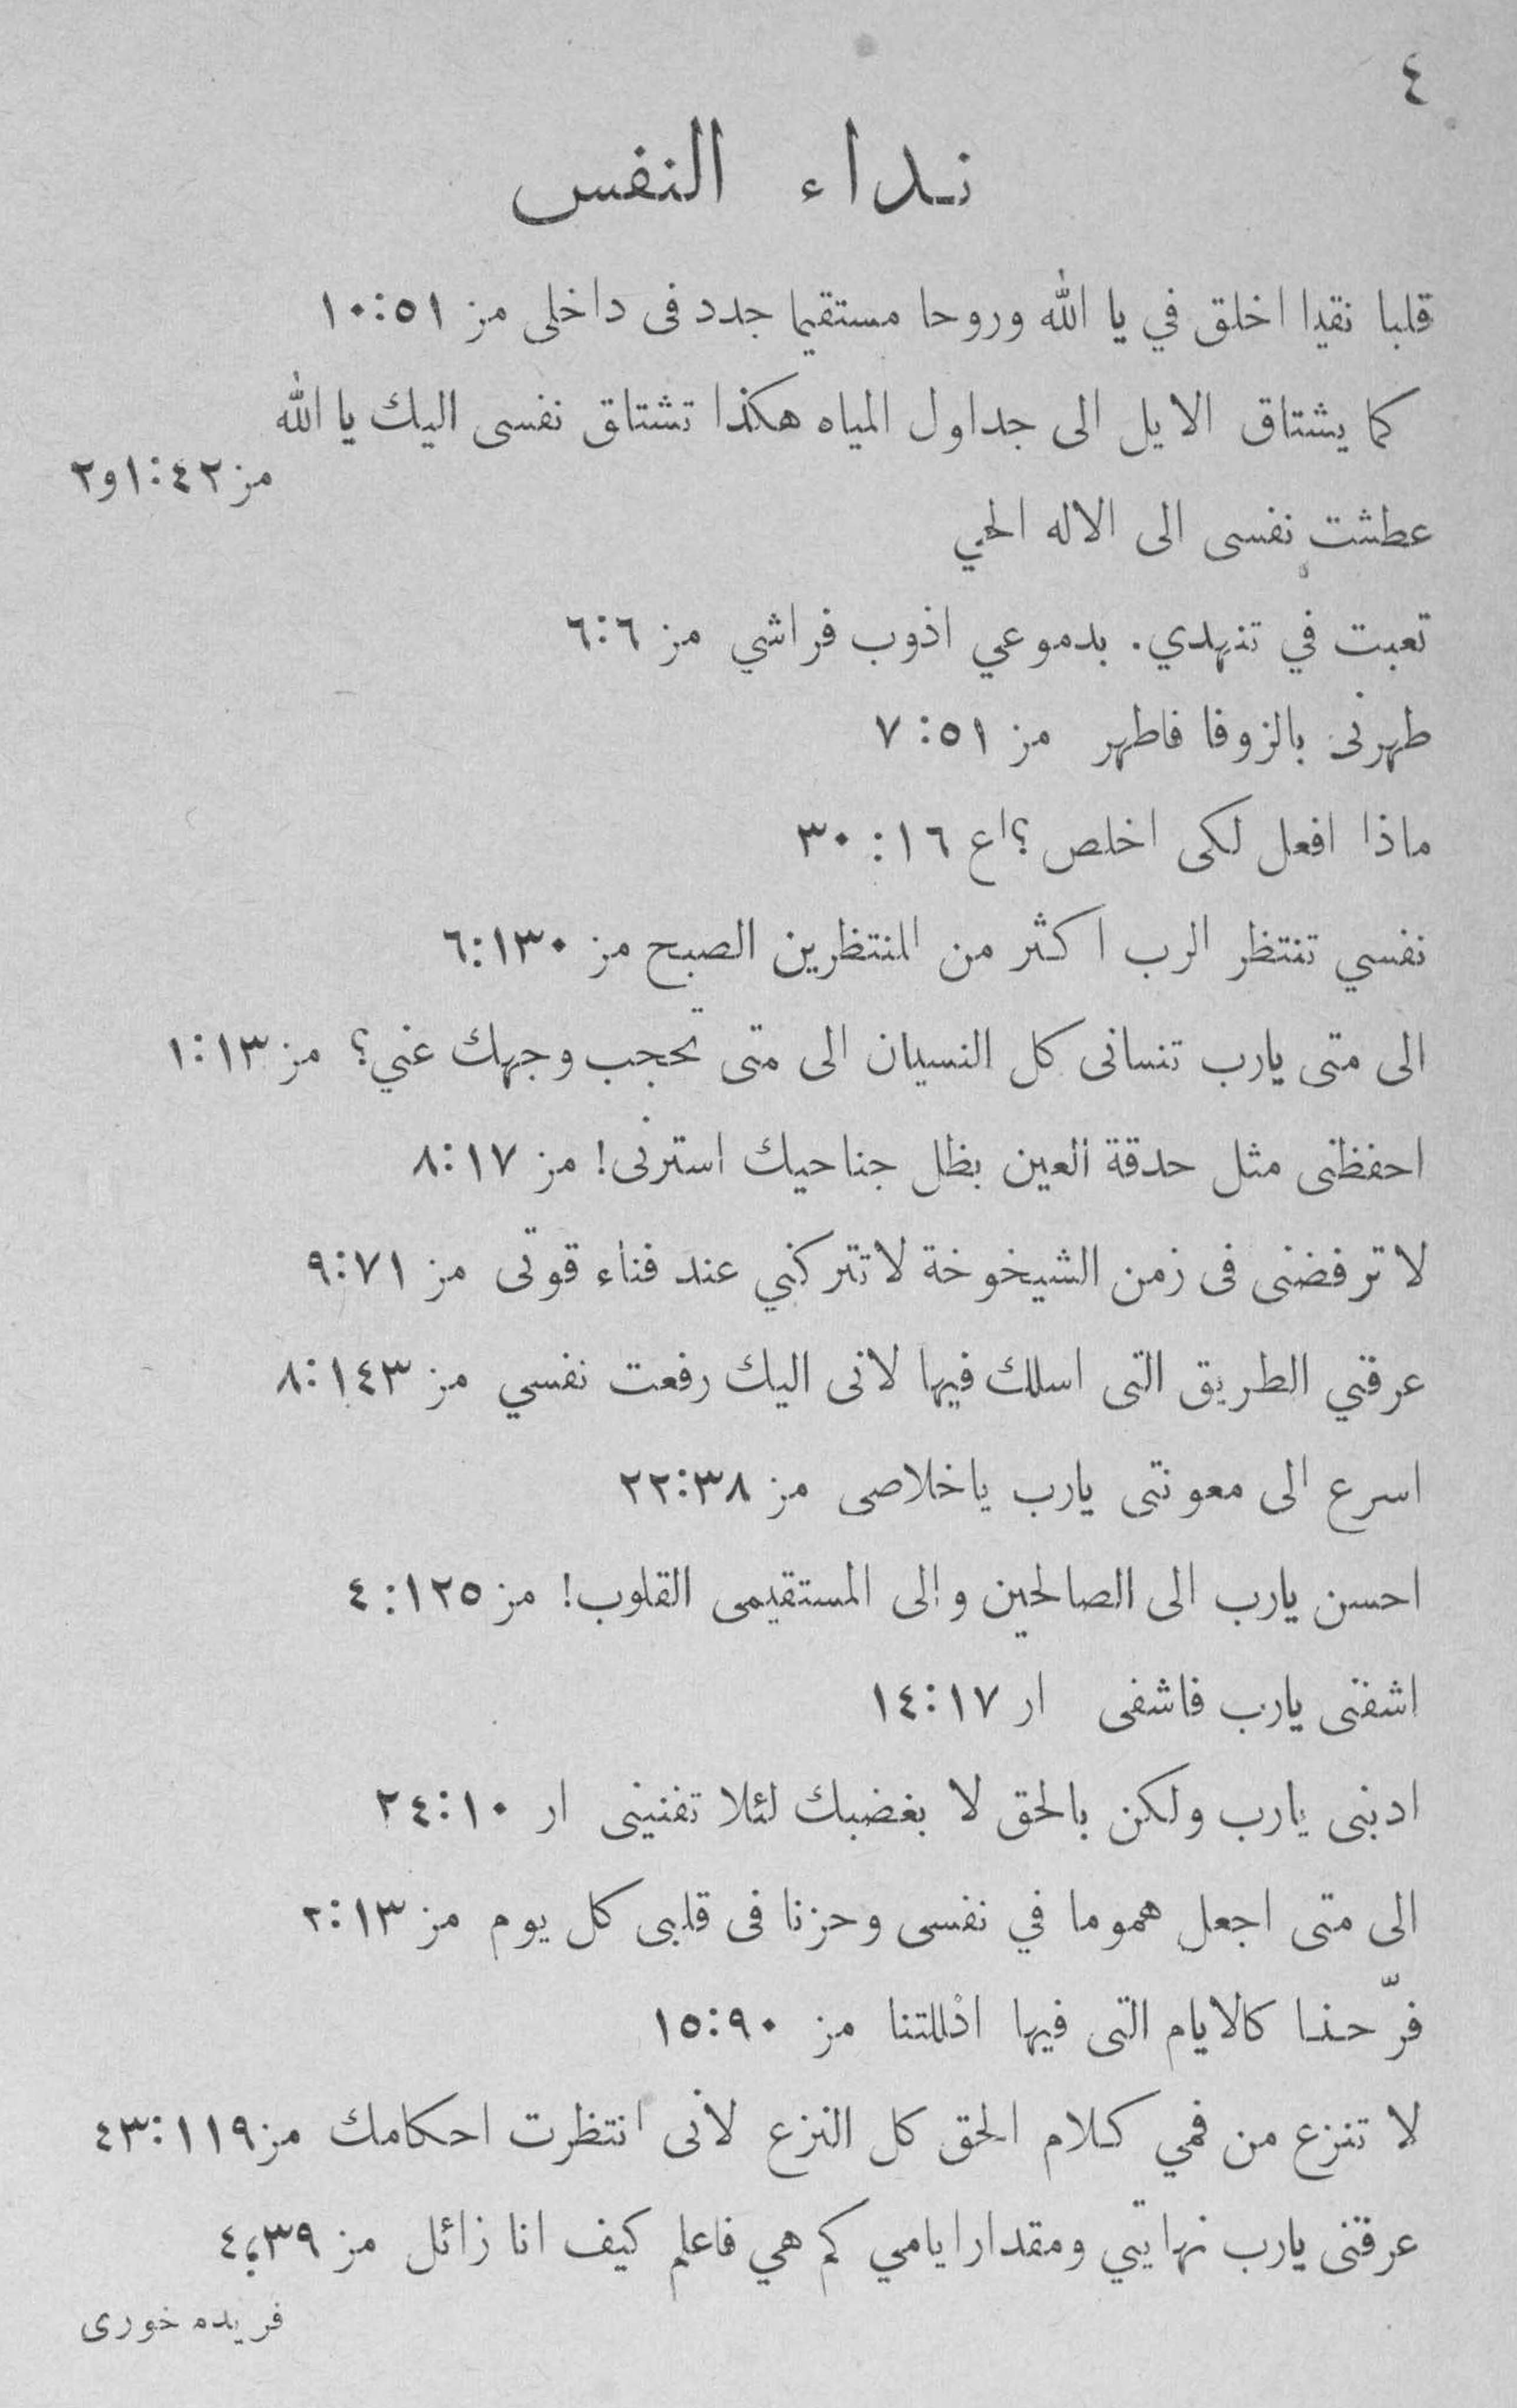 ٤
نداء النفس
قلبا نقيا اخلق في يا الله وروحا مستقيما جدد فى داخلى مز ٥١:١٠
كما يشتاق الايل الى جداول المياه هكذا تشتاق نفسى اليك يا الله
مز ٤٢:١و٢
عطشت نفسى الى الاله الحي
تعبت في تنهدي. بدموعي اذوب فراشي مز ٦:٦
طهرنى بالزوفا فاطهر مز ٥١:٧
ماذا افعل لكى اخلص ؟ اع ١٦:٣٠
نفسي تنتظر الرب اكثر من المنتظرين الصبح مز ١٣٠:٦
الى متى يارب تنسانى كل النسيان الى متى تحجب وجهك عني؟ مز ١٣:١
احفظنى مثل حدقة العين بظل جناحيك استرنى! مز ١٧:٨
لا ترفضنى فى زمن الشيخوخة لا تتركني عند فناء قوتى مز ٧١:٩
عرفني الطريق التى اسلك فيها لانى اليك رفعت نفسي مز ١٤٣:٨
اسرع الى معونتى يارب ياخلاصى مز ٣٨:٢٢
احسن يارب الى الصالحين والى المستقيمى القلوب! مز ١٢٥:٤
اشفنى يارب فاشفى ار ١٧:١٤
ادبنى يارب ولكن بالحق لا بغضبك لئلا تفنينى ار ١٠:٢٤
الى متى اجعل هموما في نفسى وحزنا فى قلبى كل يوم مز ١٣:٢
فرّحنا كالايام التى فيها اذللتنا مز ٩٠:١٥
لا تنزع من فمي كلام الحق كل النزع لأنى انتظرت احكامك مز ١١٩:٤٣
عرفنى يارب نهايتي ومقدار ايامي كم هي فاعلم كيف انا زائل مز ٣٩؛٤
فريده خورى